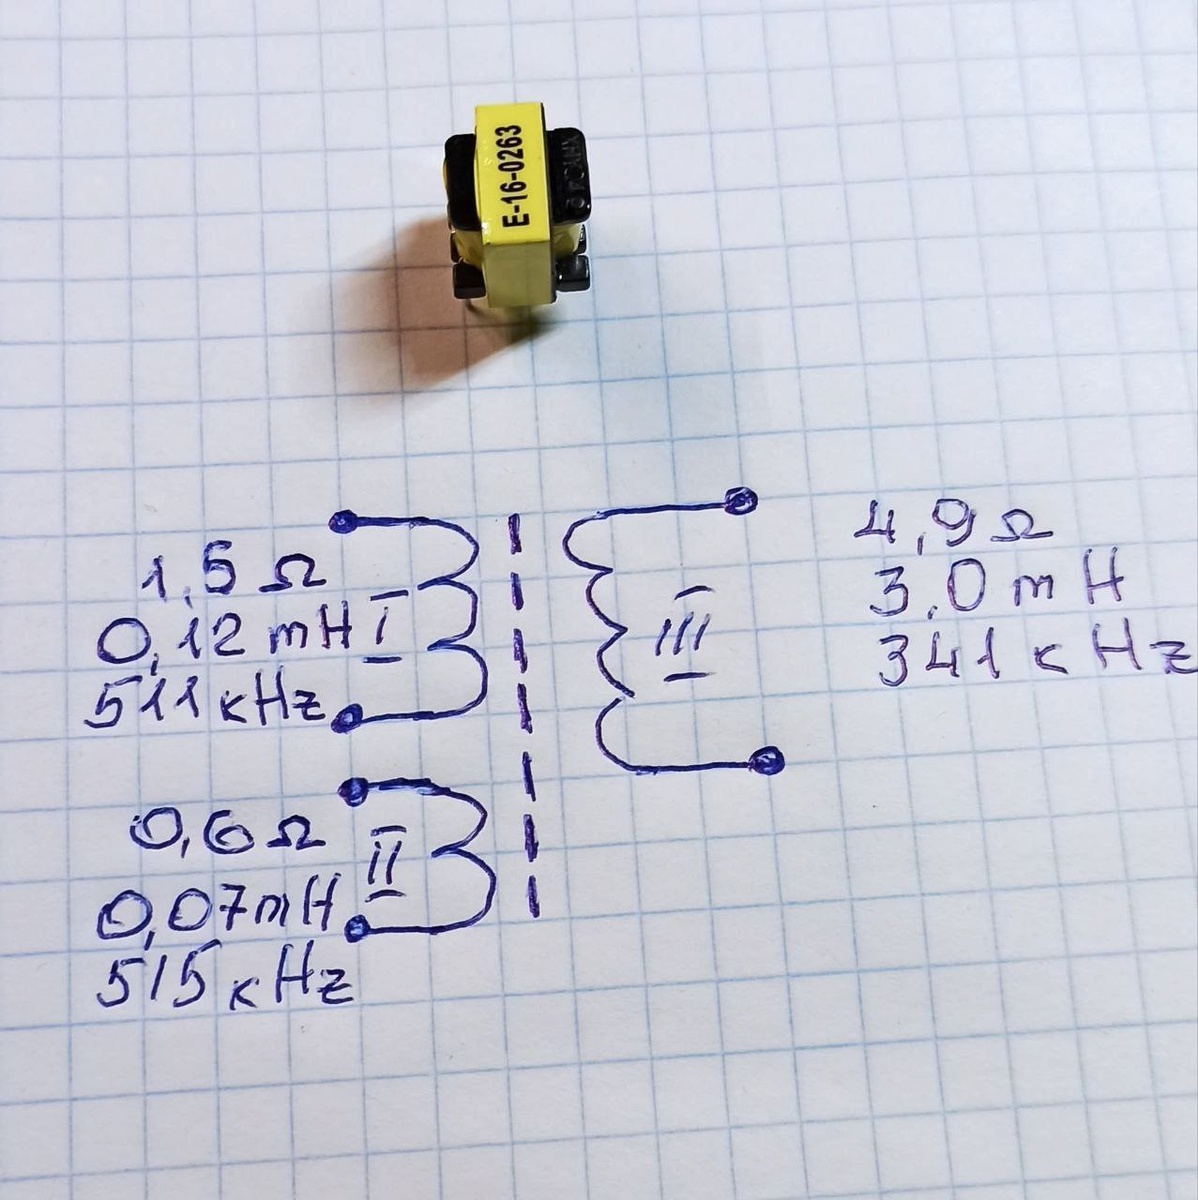 E-16-0263
1,5 Ω
0,12 mH
I
511 кHz
4,9 Ω
3,0 mH
341 кHz
III
0,6 Ω
0,07 mH
II
515 кHz